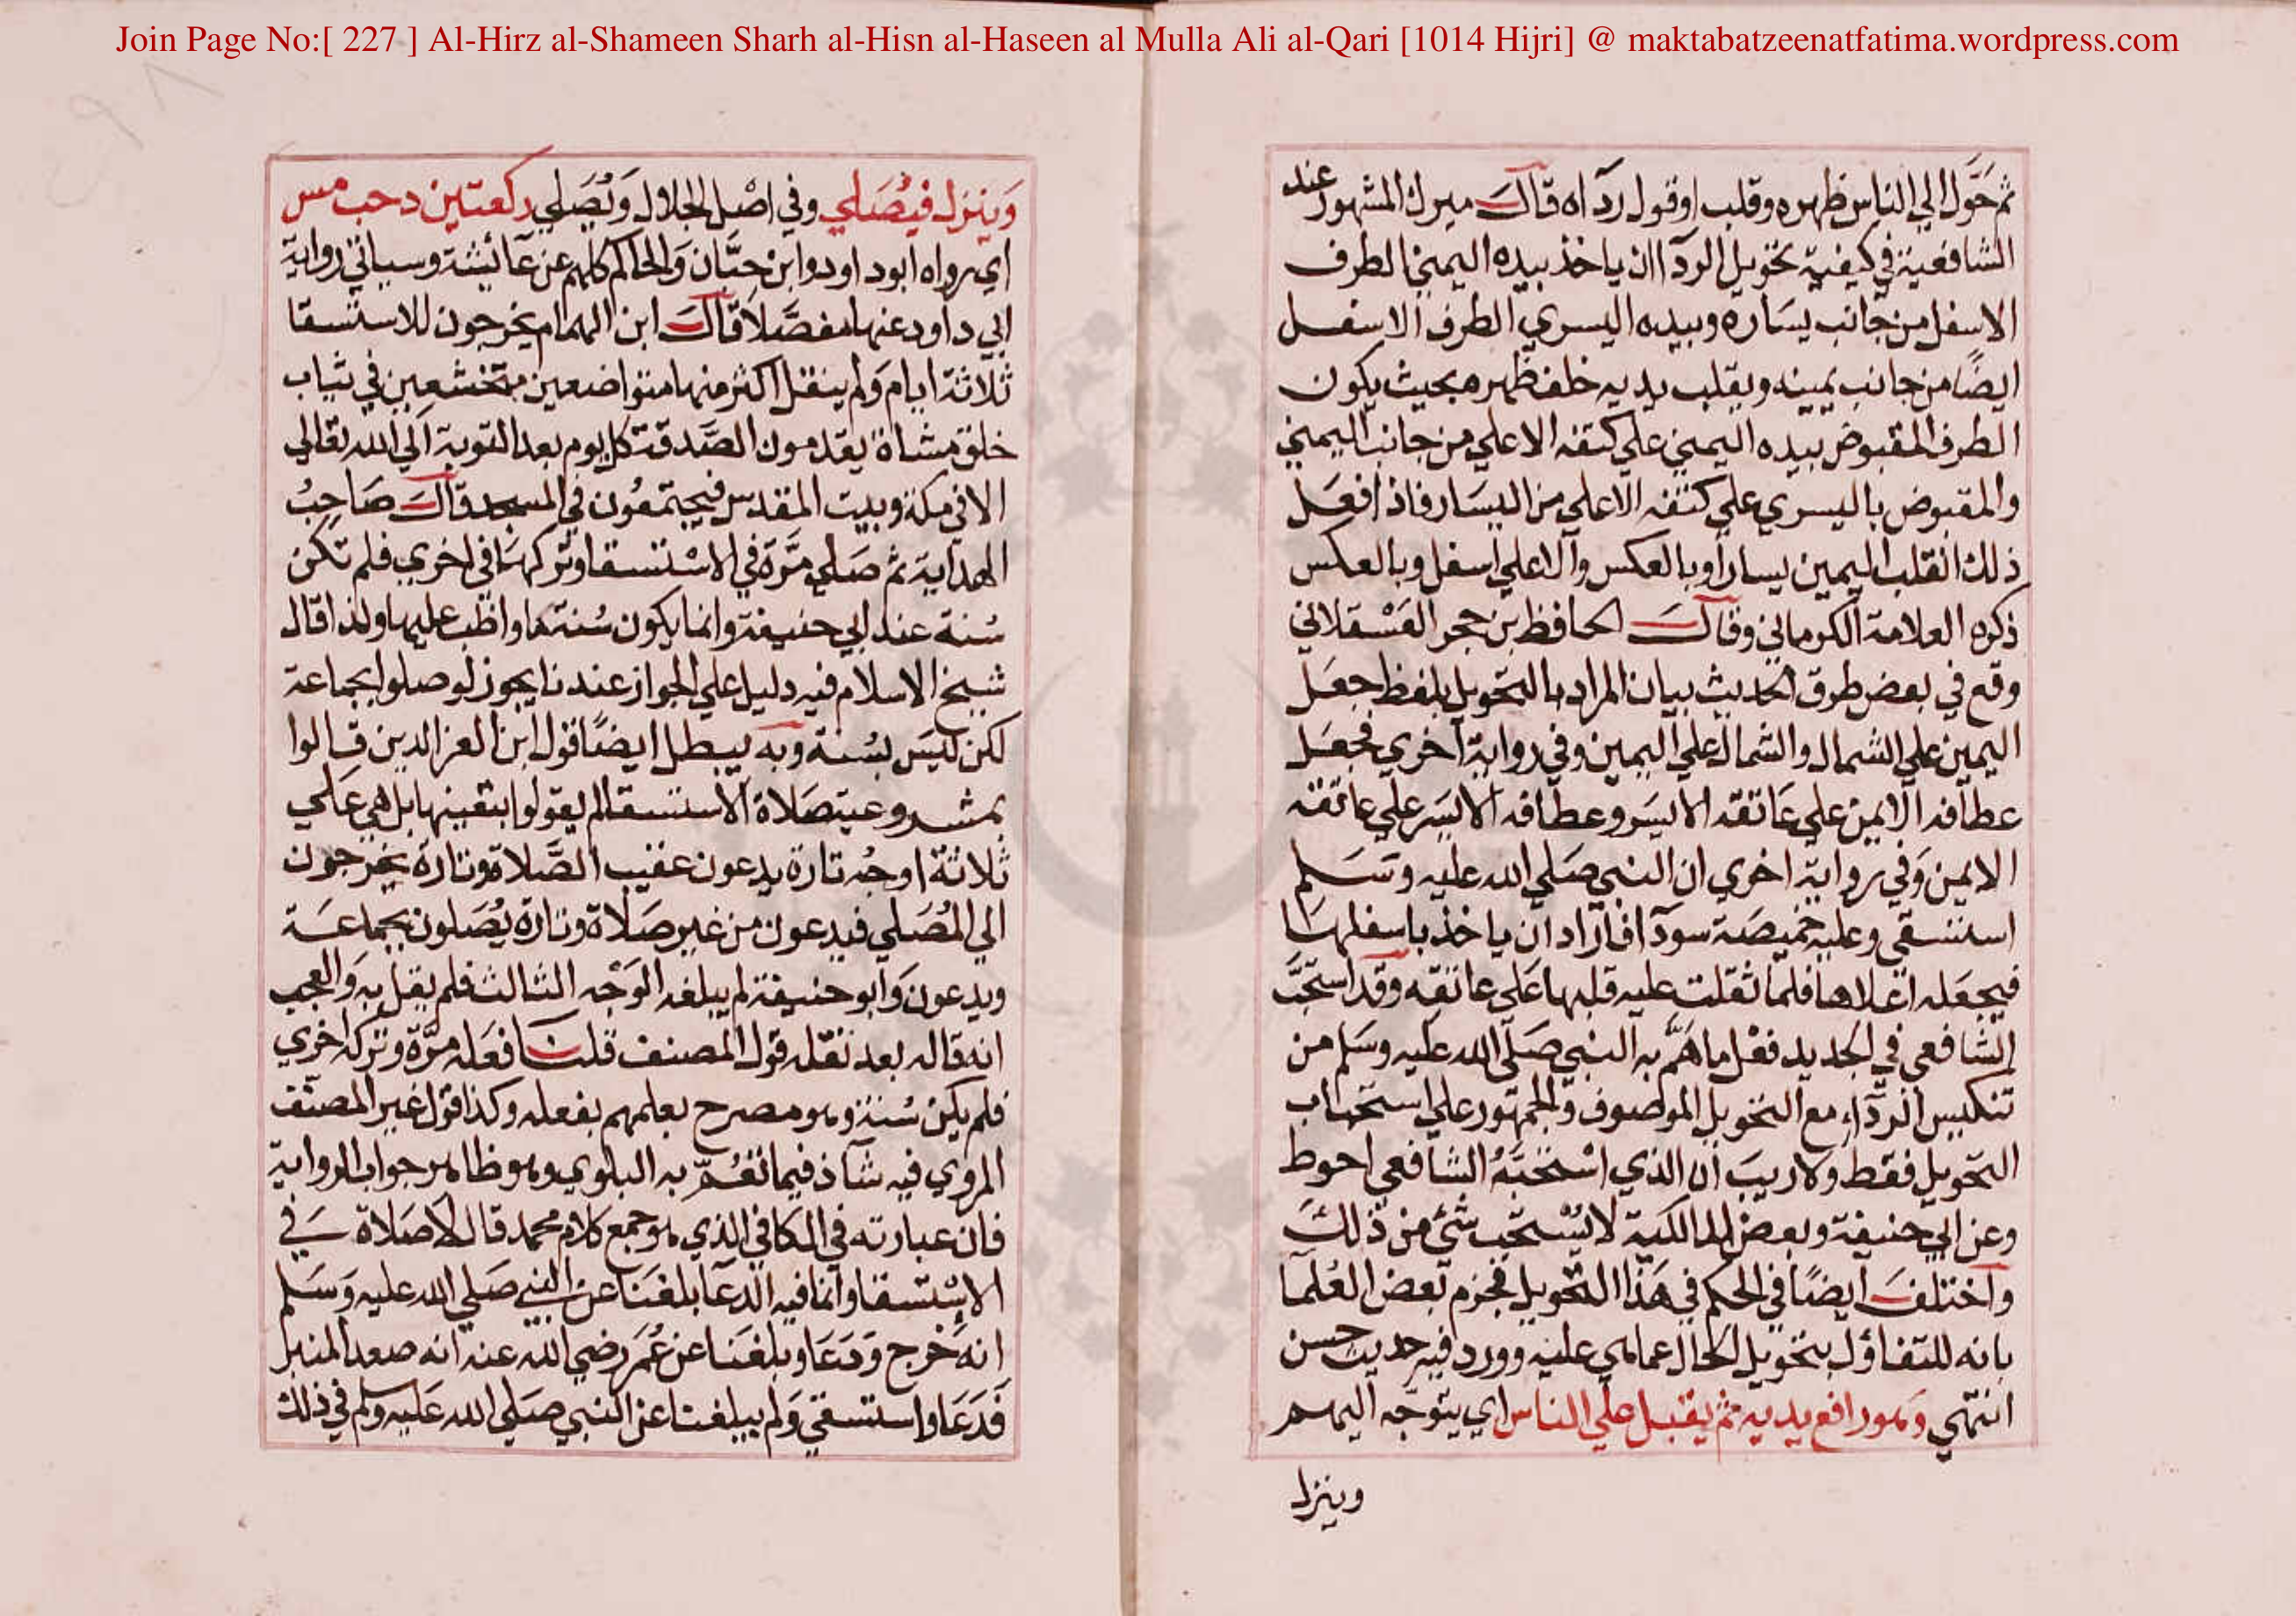 Join Page No:[ 227 ] Al-Hirz al-Shameen Sharh al-Hisn al-Haseen al Mulla Ali al-Qari [1014 Hijri] @ maktabatzeenatfatima.wordpress.com
ثم حَوَّل الي الناس ظهره وقلب او قول ردآاه قال ميرك المشهور عند
الشافعية في كيفية تحويل الردآ ان ياخذ بيده اليمني الطرف
الاسفل من جانب يسَاره وبيده اليسري الطرف الاسفل
ايضًا من جانب يمينه ويقلب يديه خلف ظهره بحيث يكون
الطرف المقبوض بيده اليمني علي كتفه الاعلي من جانب اليمني
والمقبوض باليسري علي كتفه الاعلي من اليسَار فاذا فعَل
ذلك انقلب اليمين يسارا وبالعكس والاعلي اسفل وبالعكس
ذكره العلامة الكرماني وقال الحافظ بن حجر العَسْقلاني
وقع في بعض طرق الحديث بيان المراد بالتحويل بلفظ جعَل
اليمين علي الشمال والشمال علي اليمين وفي رواية اخري فجعَل
عطافه الايمن علي عَاتقه الايسَر وعطافه الايسَر علي عاتقه
الايمن وَفي رواية اخري ان النبي صَلي الله عليه وسَلم
استسقي وعليه خميصَة سودآ فاراد ان ياخذ باسفلها
فيجعَله اعلاها فلما ثقلت عليه قلبها عَلي عاتقه وقد استحَبَّ
الشافعي في الجديد فعْل ما هَمَّ به النبي صَلي الله عليه وسَلم من
تنكيس الردّاءِ مع التحويل الموصوف والجمهور علي استحباب
التحويل فقط ولا ريبَ ان الذي اسْتحَبَّهُ الشافعي احوط
وعن ابي حنيفة وبعض المالكية لا يُسْتحَب شئ من ذلك
واختلفَ ايضًا في الحكم في هَذا التحويل فجزم بعض العُلمآ
بانه للتفاؤل بتحويل الحال عما هي عليه وورد فيه حديث حسن
انتهي وَهو رافع يديه ثم يقبل علي الناس اي يتوجّه اليهم
وينزل
وَينزل فيُصَلي وفي اصْل الجلال وَيُصَلي ركعتين د حب مس
اي رواه ابود اود وابن حبَّان وَالحاكم كلهم عن عآئشة وسياتي رواية
ابي داود عنها مفصَّلاً قالَ ابن الهمام يخرجون للاستسقا
ثلاثة ايام وَلم ينقل اكثر منها متواضعين متخشعين في ثياب
خلق مشاة يقدمون الصَّدقة كل يوم بعد التوبة الي الله تعالي
الا في مكة وبيت المقدس فيجتمعُون في المسجد قالَ صَاحِبُ
الهداية ثم صَلي مَرَّة في الاسْتسقا وتركهَا في اخري فلم تكن
سُنة عند ابي حنيفة وانما يكون سُنة ما واظب عليها ولذا قال
شيخ الاسلام فيه دليل علي الجواز عندنا يجوز لو صلوا بجماعة
لكن ليَس بسُنة وَبه يبطل ايضًا قول ابن العز الدين قالوا
بمشروعية صَلاة الاستسقا لم يقولوا بتعينها بل هي عَلي
ثلاثة اوجُه تارة يدعون عقيب الصَّلاة وتارة يخرجون
الي المُصَلي فيدعون من غير صَلاة وتارة يُصَلون بجماعَة
ويدعون وَابو حنيفة لم يبلغه الوَجْه الثالث فلم يقل به وَالعجب
انه قاله بعد نقله قول المصنف قلنا فعَله مَرَّة وتركه اخري
فلم يكن سُنة وهو مصرح بعلمهم بفعله وكذا قول غير المصنّف
المروي فيه شآذ فيما تعُمّ به البلوي وهو ظاهر جواب الرواية
فان عبارته في الكافي الذي هو جمع كلام محمد قال لا صَلاة في
الاِسْتسقا وانما فيه الدعآ بلغنَا عن النبي صَلي الله عليه وَسَلم
انه خَرج وَدَعَا وبلغَنا عن عُمَر رضي الله عنه انه صعد المنبر
فَدَعَا واستسقي وَلم يبلغنا عن النبي صَلي الله عَليه وسلم في ذلك